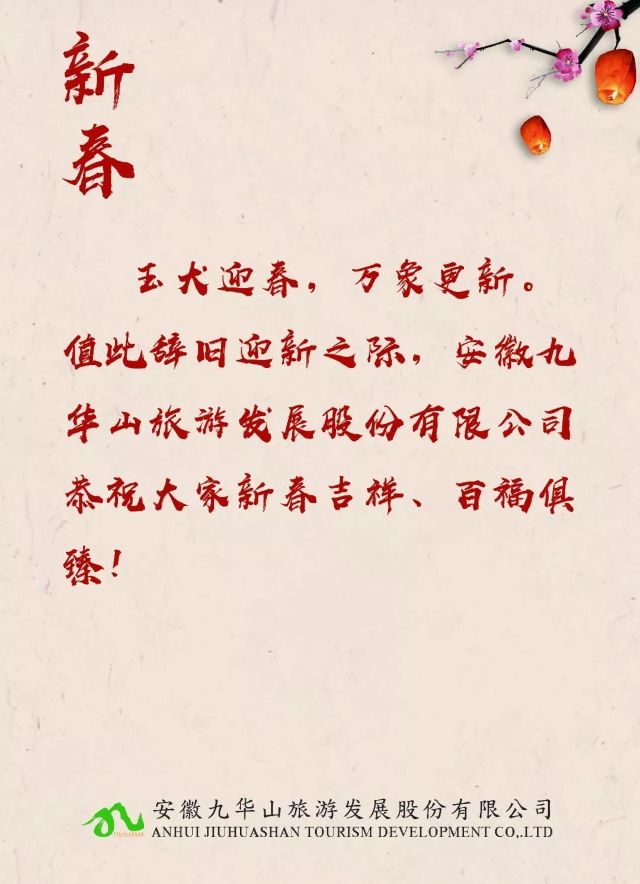 新
春
玉犬迎春，万象更新。
值此辞旧迎新之际，安徽九
华山旅游发展股份有限公司
恭祝大家新春吉祥、百福俱
臻！
安徽九华山旅游发展股份有限公司
JIUHUASHAN
ANHUI JIUHUASHAN TOURISM DEVELOPMENT CO,.LTD